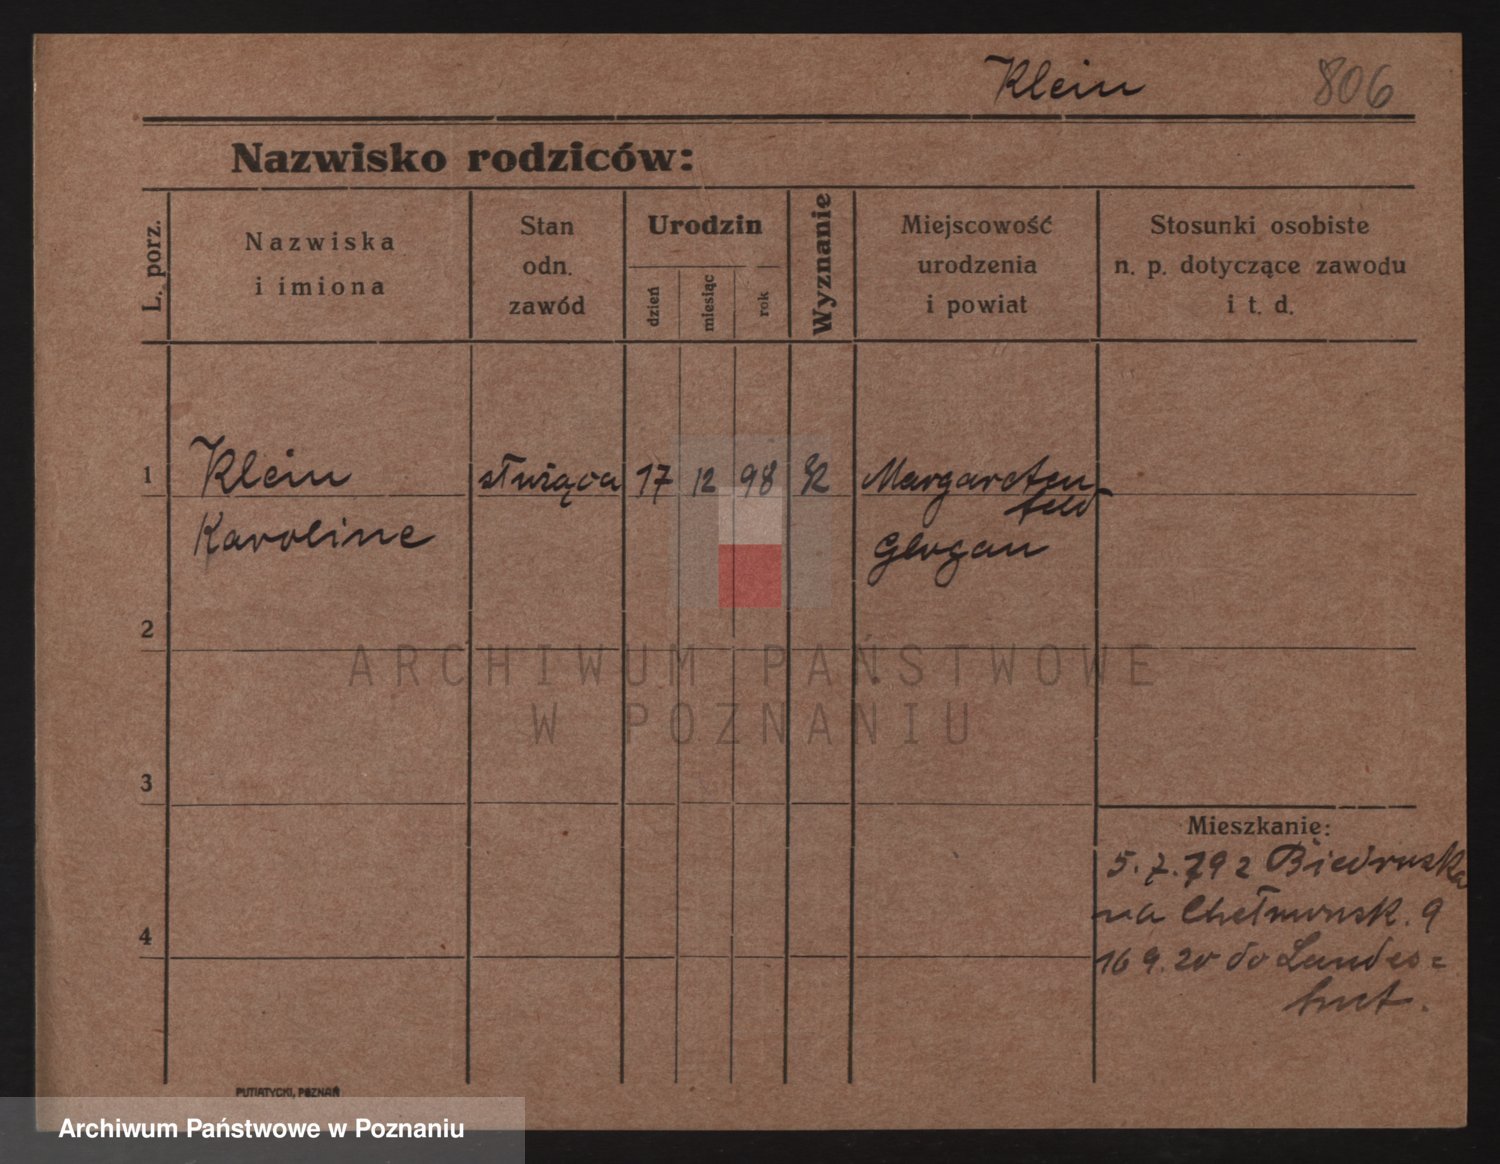 Klein 806
Nazwisko rodziców:
L. porz.
Nazwiska
i imiona
Stan
odn.
zawód
Urodzin
dzień
miesiąc
rok
Wyznanie
Miejscowość
urodzenia
i powiat
Stosunki osobiste
n. p. dotyczące zawodu
i t. d.
1 Klein służąca 17 12 98 Margareten
feld
Karoline Glogau
2
ARCHIWUM PAŃSTWOWE
W POZNANIU
3
Mieszkanie:
5. 7. 19 z Biedruska
na Chełmonsk. 9
4
16 9. 20 do Landes=
hut.
PUTIATYCKI, POZNAŃ
Archiwum Państwowe w Poznaniu